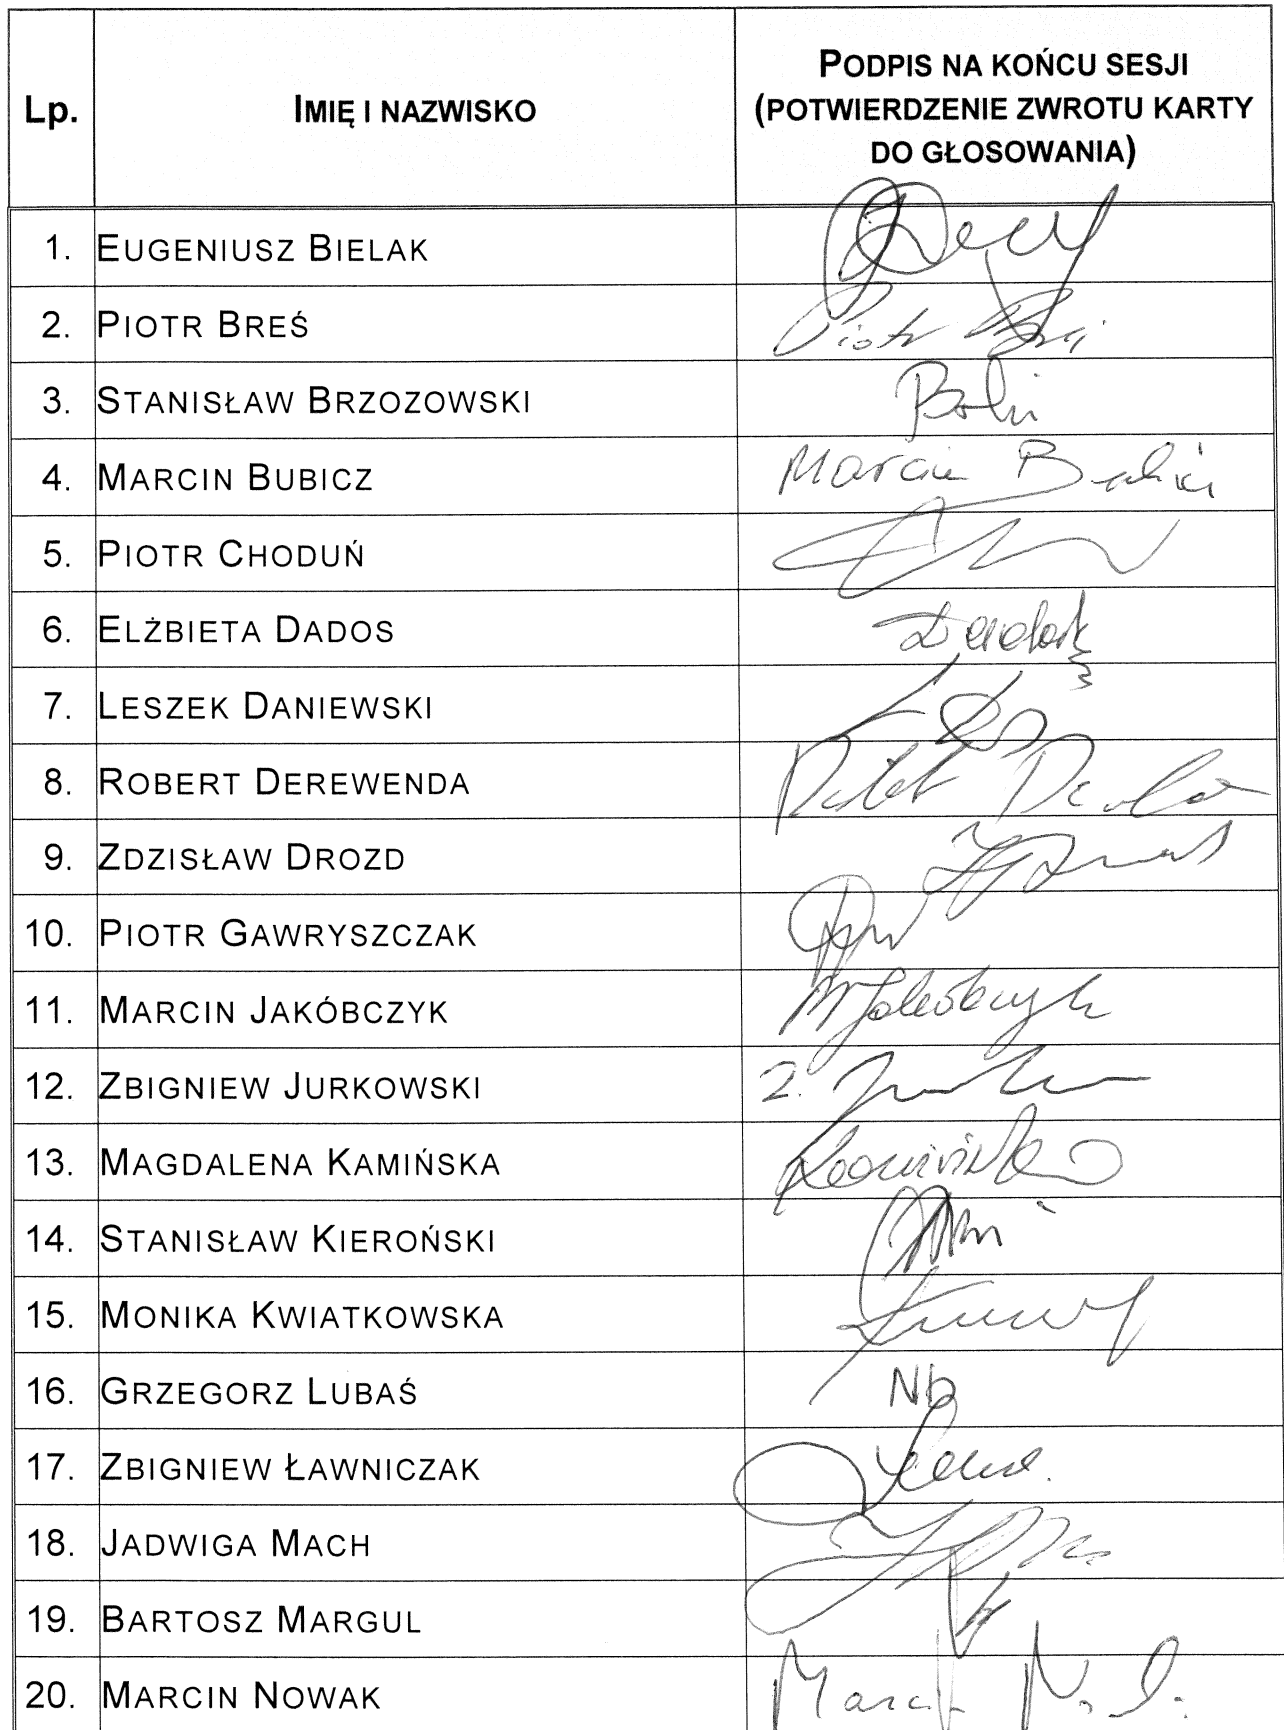 Lp.
IMIĘ I NAZWISKO
PODPIS NA KOŃCU SESJI
(POTWIERDZENIE ZWROTU KARTY
DO GŁOSOWANIA)
1. EUGENIUSZ BIELAK
2. PIOTR BREŚ Piotr Breś
3. STANISŁAW BRZOZOWSKI
4. MARCIN BUBICZ Marcin Bubicz
5. PIOTR CHODUŃ
6. ELŻBIETA DADOS
7. LESZEK DANIEWSKI
8. ROBERT DEREWENDA
9. ZDZISŁAW DROZD
10. PIOTR GAWRYSZCZAK
11. MARCIN JAKÓBCZYK M Jakóbczyk
12. ZBIGNIEW JURKOWSKI
13. MAGDALENA KAMIŃSKA Kamińska
14. STANISŁAW KIEROŃSKI
15. MONIKA KWIATKOWSKA
16. GRZEGORZ LUBAŚ Nb
17. ZBIGNIEW ŁAWNICZAK
18. JADWIGA MACH
19. BARTOSZ MARGUL
20. MARCIN NOWAK Marcin